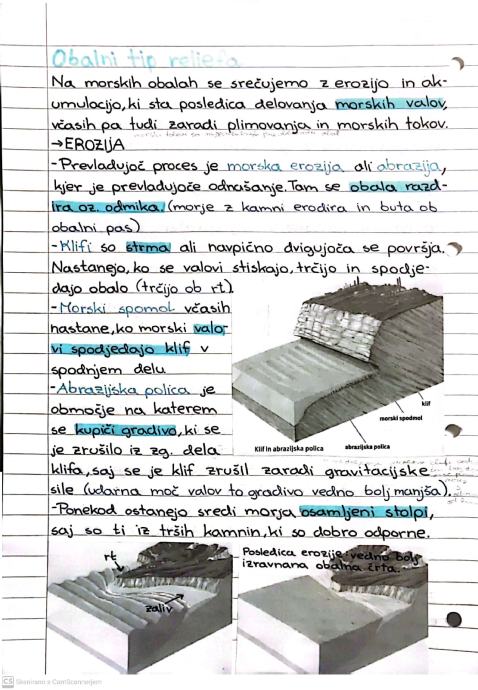 Obalni tip reliefa
Na morskih obalah se srečujemo z erozijo in ak-
umulacijo, ki sta posledica delovanja morskih valov,
včasih pa tudi zaradi plimovanja in morskih tokov.
→EROZIJA
-Prevladujoč proces je morska erozija ali abrazija,
kjer je prevladujoče odnašanje. Tam se obala razd-
ira oz. odmika. (morje z kamni erodira in buta ob
obalni pas)
-Klifi so strma ali navpično dvigujoča se površja.
Nastanejo, ko se valovi stiskajo, trčijo in spodje-
dajo obalo (trčijo ob rt)
-Morski spomol včasih
nastane, ko morski valo-
vi spodjedajo klif v
spodnjem delu
-Abrazijska polica je
območje na katerem
se kupiči gradivo, ki se
je zrušilo iz zg. dela
klifa, saj se je klif zrušil zaradi gravitacijske
sile (udarna moč valov to gradivo vedno bolj manjša).
-Ponekod ostanejo sredi morja osamljeni stolpi,
saj so ti iz trših kamnin, ki so dobro odporne.
klif
morski spodmol
abrazijska polica
Klif in abrazijska polica
rt
zaliv
Posledica erozije: vedno bolj
izravnana obalna črta.
CS Skenirano z CamScannerjem